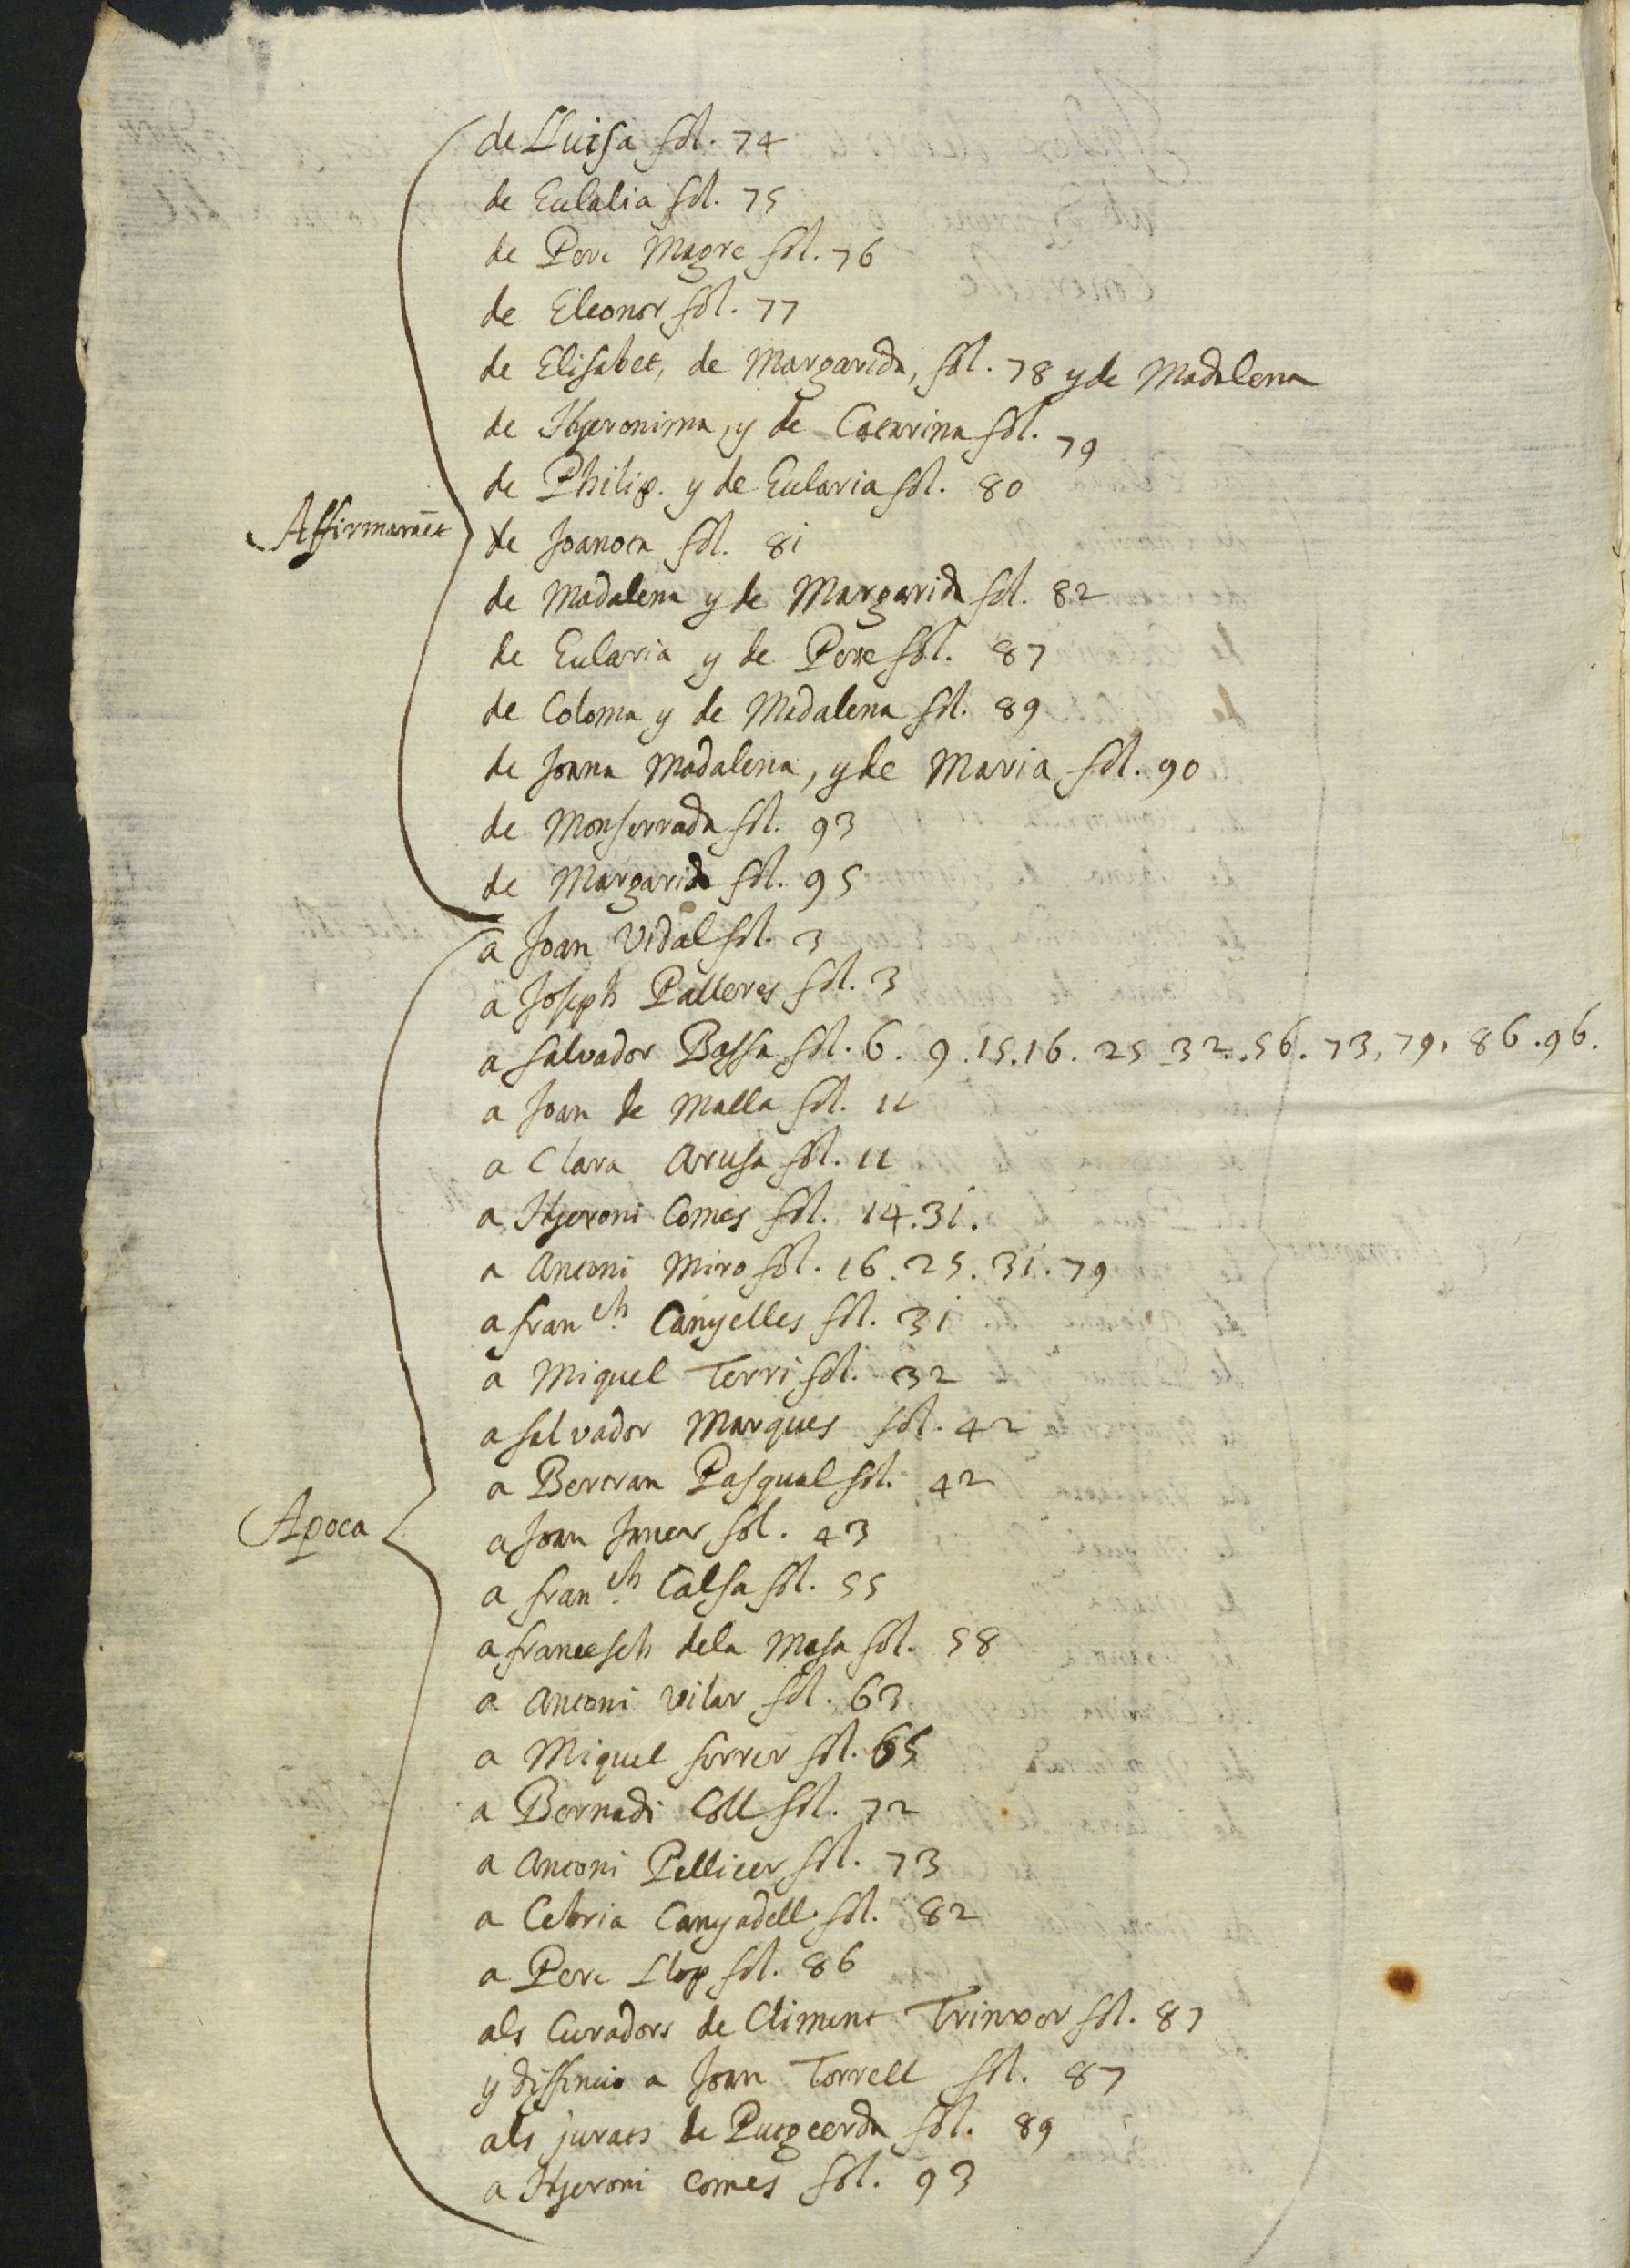 de Lluisa fol. 74
de Eulalia fol. 75
de Pere Magre fol. 76
de Eleonor fol. 77
de Elisabet, de Margarida, fol. 78 y de Madalena
de Hyeronima, y de Catarina fol. 79
de Philip. y de Eularia fol. 80
Affirmamēt
de Joanota fol. 81
de Madalena y de Margarida fol. 82
de Eularia y de Pere fol. 87
de Coloma y de Madalena fol. 89
de Joana Madalena, y de Maria fol. 90
de Monserrada fol. 93
de Margarida fol. 95
a Joan Vidal fol. 3
a Joseph Palleres fol. 3
a Salvador Bassa fol. 6. 9. 15. 16. 25 32. 56. 73, 79, 86. 96.
a Joan de Malla fol. 11
a Clara Arusa fol. 11
a Hyeroni Comes fol. 14. 31.
a Antoni Miro fol. 16. 25. 31. 79
a franch. Canyelles fol. 31
a Miquel Terri fol. 32
a Salvador Marques fol. 42
a Bertran Pasqual fol. 42
Apoca
a Joan Janer fol. 43
a franch. Calsa fol. 55
a francesch dela Mesa fol. 58
a Antoni Vilar fol. 63
a Miquel ferrer fol. 65
a Bernadi Coll fol. 72
a Antoni Pellicer fol. 73
a Cebria Canyadell fol. 82
a Pere Llop fol. 86
als Curadors de Climent Trinxer fol. 87
y diffinio a Joan Torrell fol. 87
als jurats de Puigcerda fol. 89
a Hyeroni Comes fol. 93